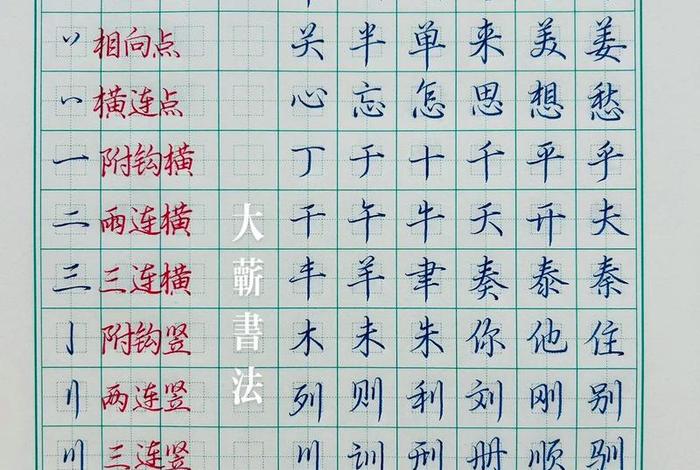 相向点 关 半 单 来 美 姜
横连点 心 忘 怎 思 想 愁
一 附钩横 丁 于 十 千 平 乎
二 两连横 干 午 牛 夭 开 夫
三 三连横 丰 羊 聿 奏 泰 秦
亅 附钩竖 木 未 朱 你 他 住
刂 两连竖 列 则 利 刘 刚 别
川 三连竖 川 训 刑 册 顺 驯
大蘄書法